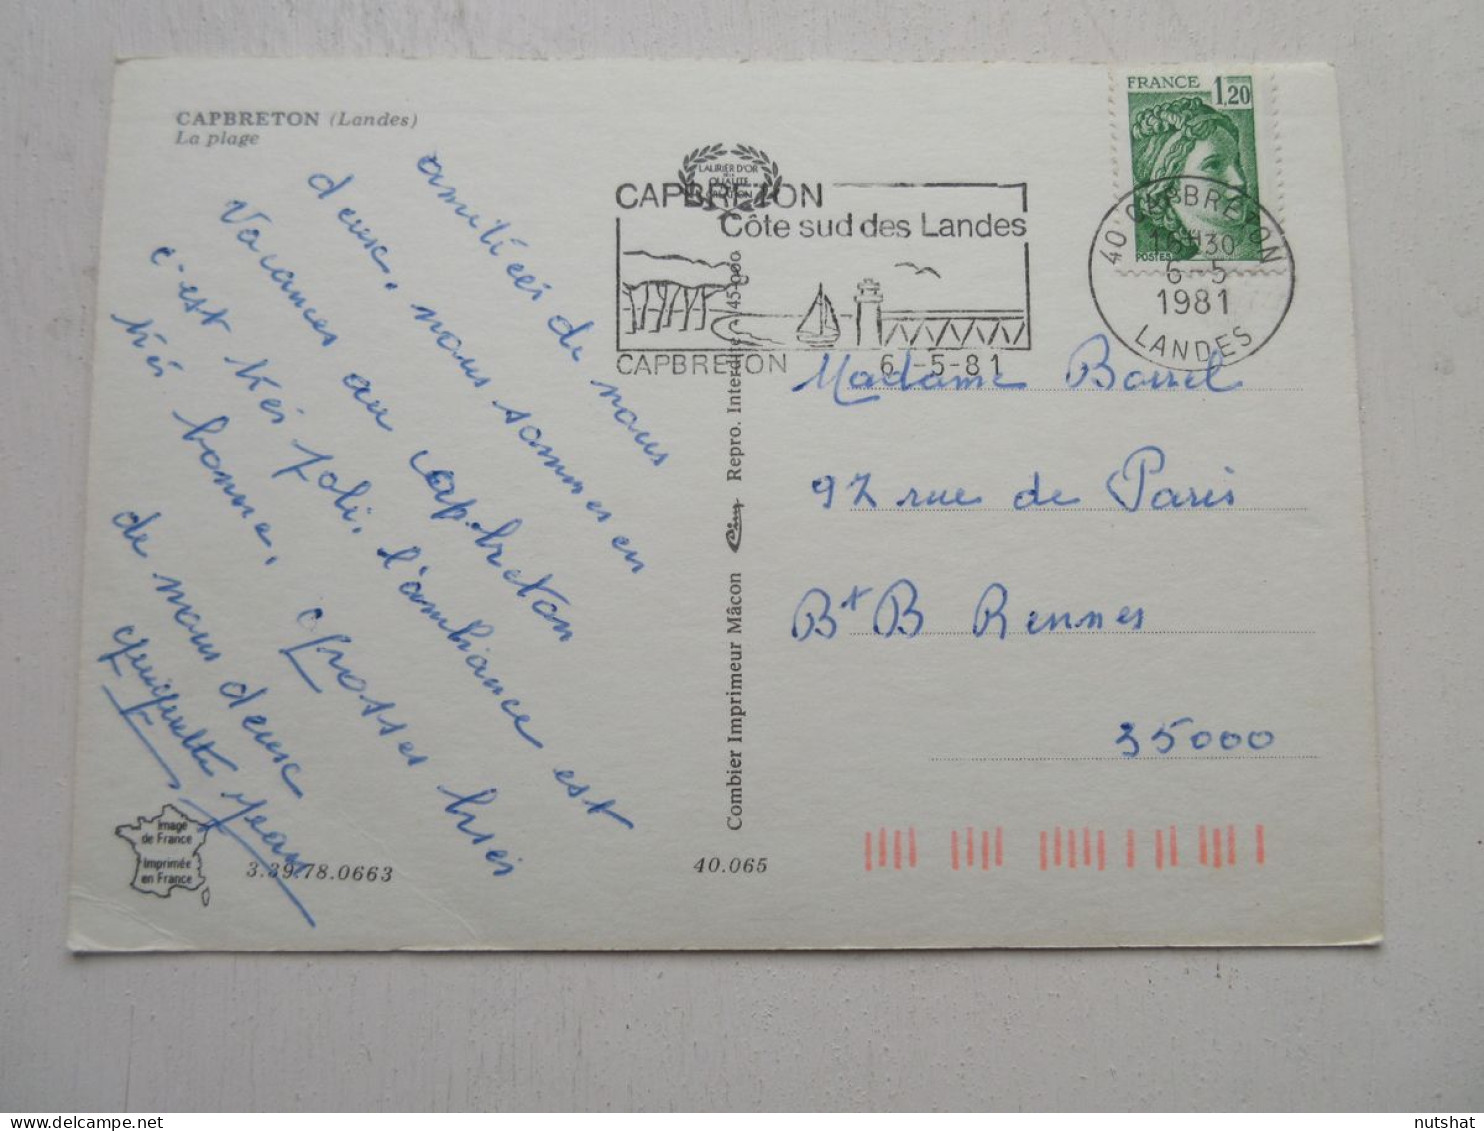 CAPBRETON (Landes)
La plage
amitiées de nous
deuse, nous sommes en
Vacances au capbreton
c'est trés joli, l'ambiance est
trés bonne, grosses bises
de nous deuse
Jean
LAURIER D'OR
DE LA
QUALITE
CREATION
CAPBRETON
Côte sud des Landes
CAPBRETON 6-5-81
FRANCE 1,20
POSTES
40 CAPBRETON
16H30
6-5
1981
LANDES
Madame Borrel
97 rue de Paris
Bt B Rennes
35000
Combier Imprimeur Mâcon Cim Repro. Interdite 45-000
Image
de France
Imprimée
en France
3.39.78.0663
40.065
nutshat